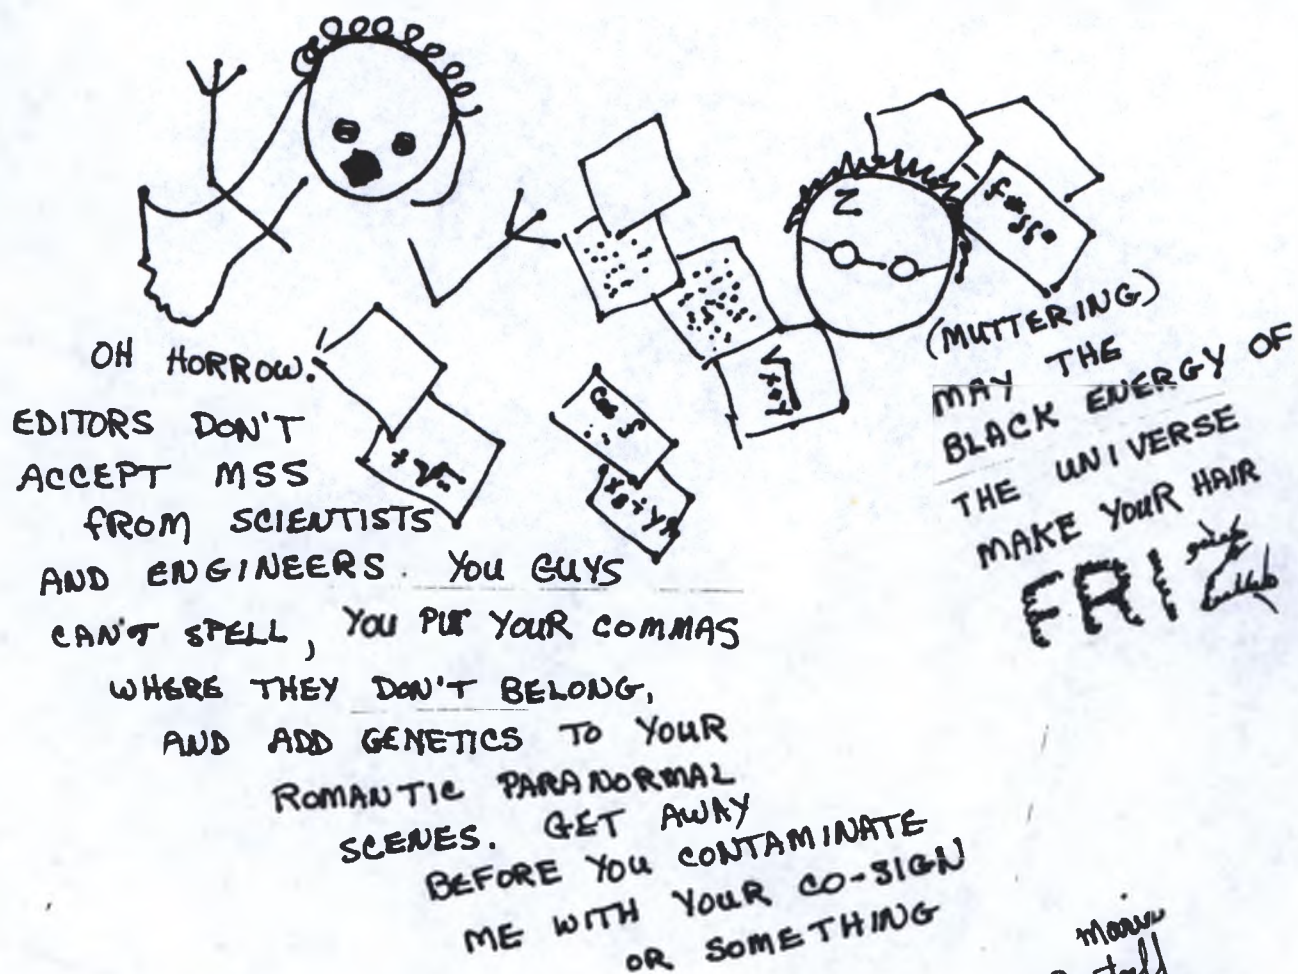 OH HORROW.
EDITORS DON'T
ACCEPT MSS
FROM SCIENTISTS
AND ENGINEERS. YOU GUYS
CAN'T SPELL, YOU PUT YOUR COMMAS
WHERE THEY DON'T BELONG,
AND ADD GENETICS TO YOUR
ROMANTIC PARANORMAL
SCENES. GET AWAY
BEFORE YOU CONTAMINATE
ME WITH YOUR CO-SIGN
OR SOMETHING
(MUTTERING)
MAY THE
BLACK ENERGY OF
THE UNIVERSE
MAKE YOUR HAIR
FRIZ